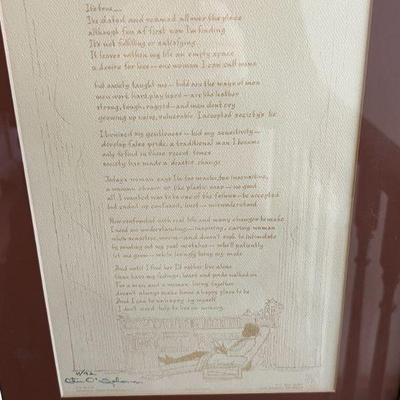 It's true...
I've dated and roamed all over the place
although fun at first now I'm finding
It's not fulfilling or satisfying
It leaves within my life an empty space
a desire for love — one woman I can call mine
but society taught me — bold are the ways of men
men work hard, play hard — are like leather
strong, tough, rugged — and men don't cry
growing up naive, vulnerable I accepted society's lie
I buried my gentleness — hid my sensitivity —
develop false pride, a traditional man I became
only to find in these recent times
society has made a drastic change
Today's woman says I'm too macho, too insensitive,
a woman chaser or the plastic man — no good
all I wanted was to take one of the
but ended up confused, lost — misunderstood
Now confronted with real life and many changes to make
I need an understanding — inspiring, caring woman
who's sensitive, warm — and doesn't seek to intimidate
by pointing out my past mistakes — who'll patiently
let me grow — while lovingly being my mate
And until I find her I'd rather live alone
than have my feelings, heart and pride walked on
For a man and a woman living together
doesn't always make home a happy place to be
And I can be unhappy by myself
I don't need help to be in misery